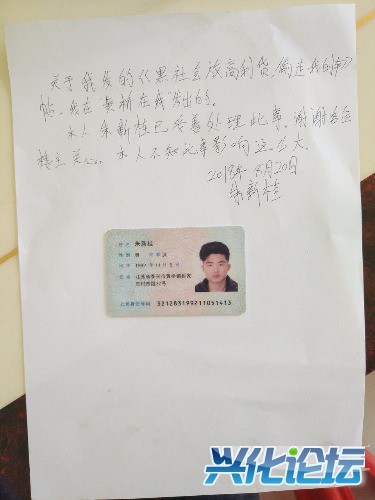 关于我发的《黑社会放高利贷,偷走我的
帖,我在"黄桥在线"发出的。
本人朱新桂已妥善处理此事,谢谢各位
楼主关心。本人不知此事影响这么大
2018年8月20日
朱新桂
姓名 朱新桂
性别 男 民族 汉
出生 1992年11月5日
住址 江苏省泰兴市黄桥镇
公民身份号码 321283199211051413
兴化论坛